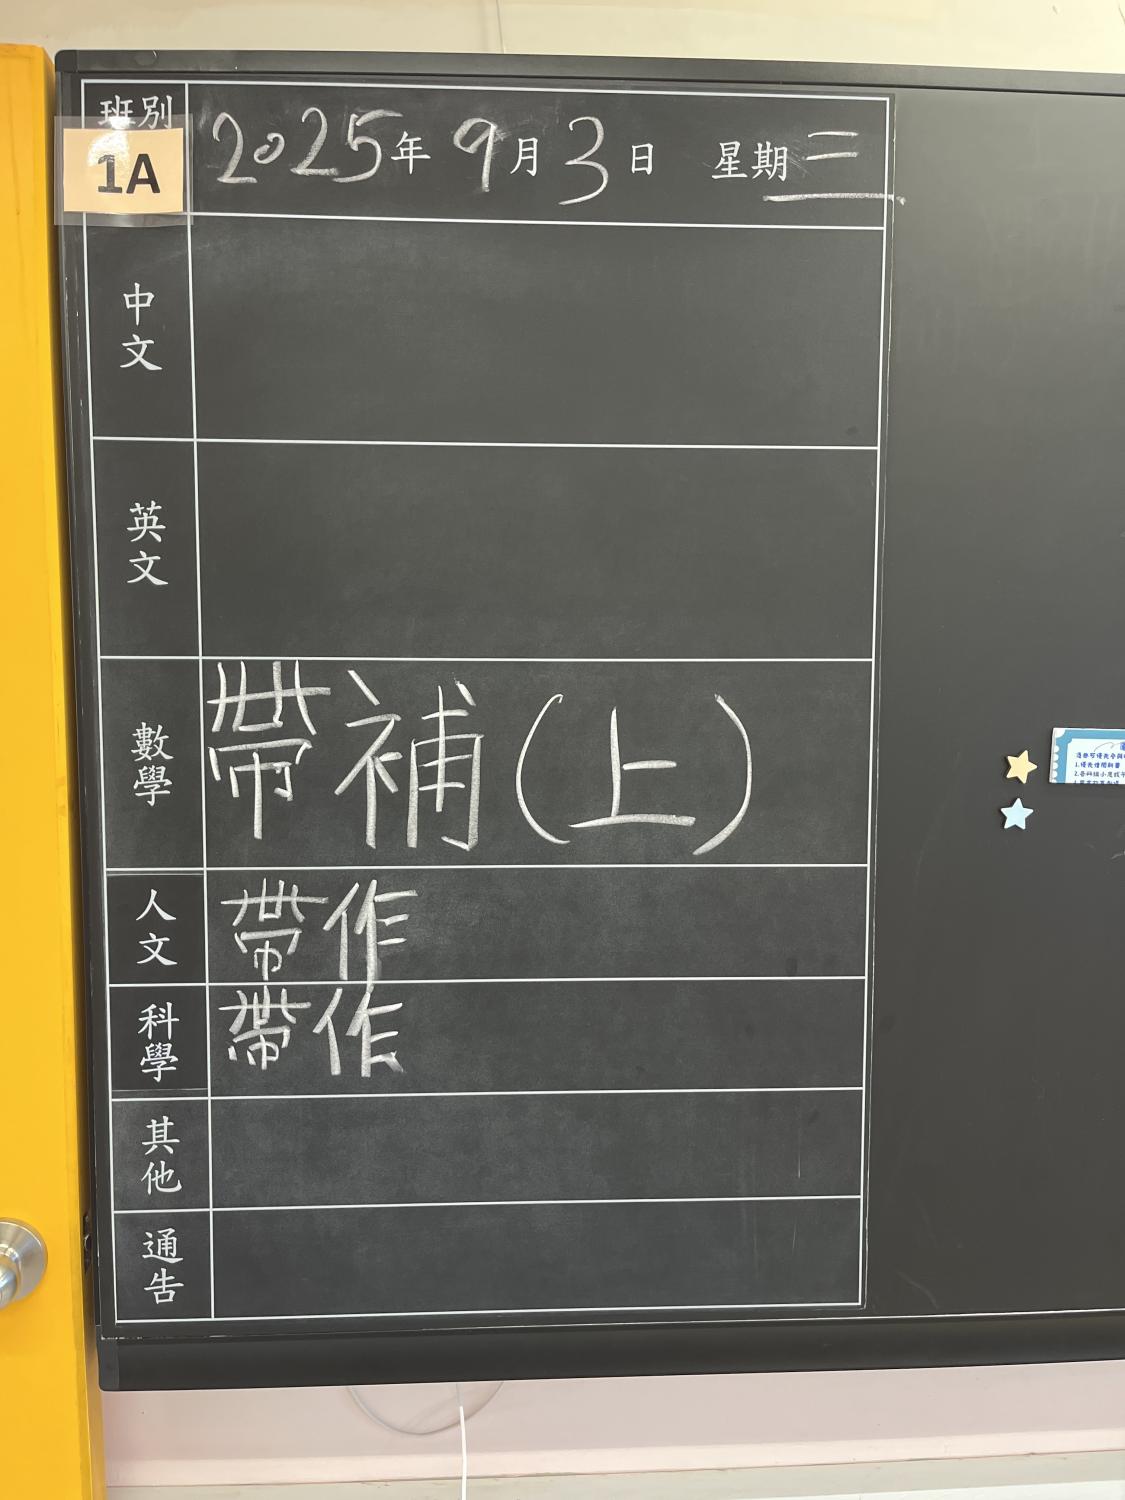 班別
1A
2025年 9月3日 星期三
中文
英文
數學
帶補(上)
人文
帶作
科學
帶作
其他
通告
1.優先借閱新書